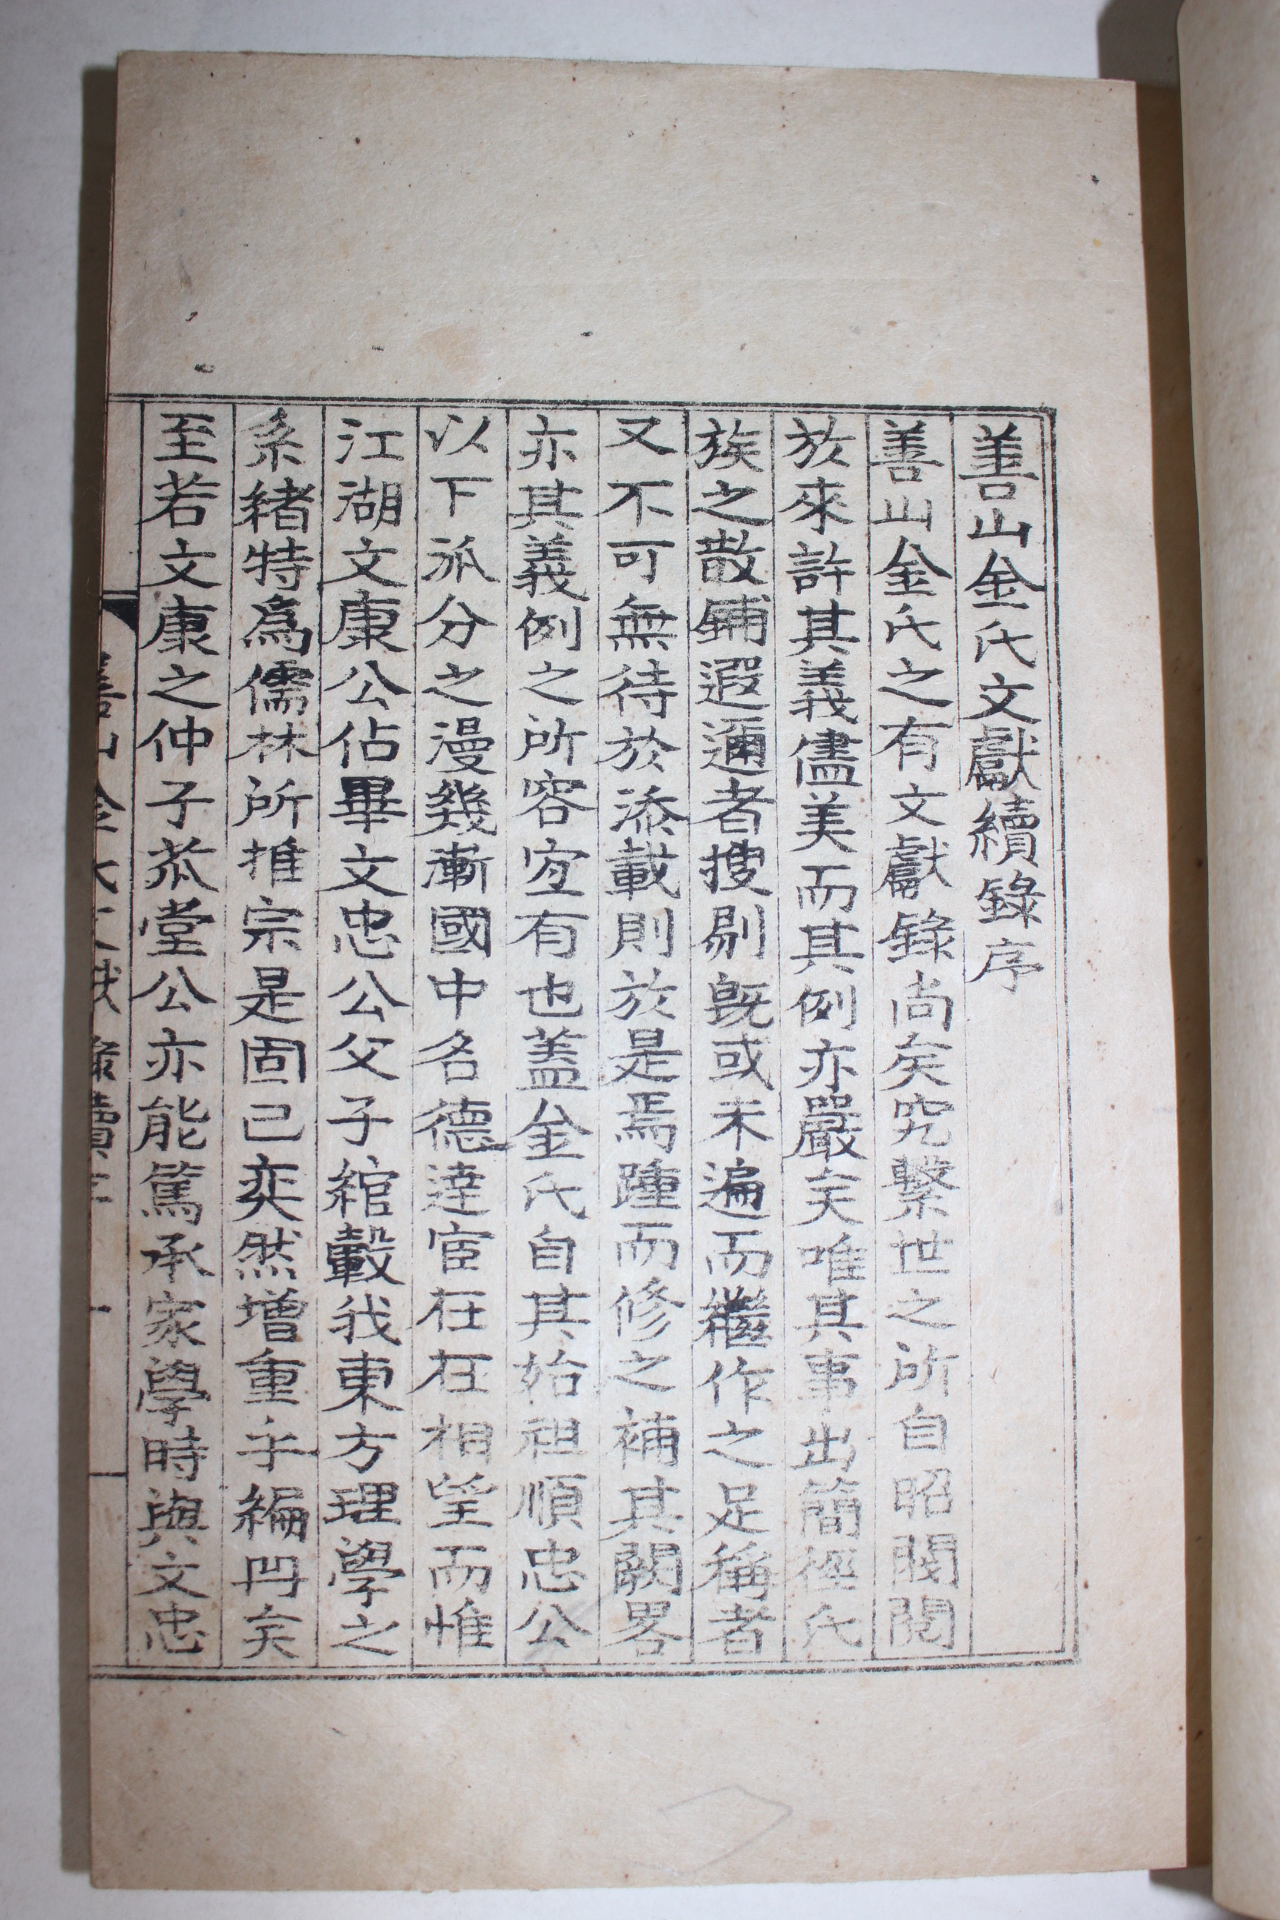 善山金氏文獻續錄序
善山金氏之有文獻錄尙矣究繫世之所自昭閥閱
於來許其義儘美而其例亦嚴矣唯其事出簡徑氏
族之散鋪遐邇者搜剔旣或未遍而繼作之足稱者
又不可無待於添載則於是焉踵而修之補其闕畧
亦其義例之所容宜有也盖金氏自其始祖順忠公
以下派分之漫幾漸國中名德達宦在在相望而惟
江湖文康公佔畢文忠公父子綰轂我東方理學之
系緖特爲儒林所推宗是固已奕然增重乎編冊矣
至若文康之仲子茶堂公亦能篤承家學時與文忠
善山金氏文獻錄續序 一